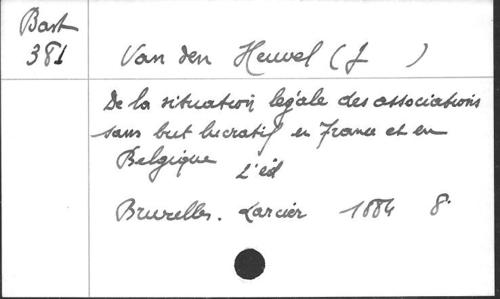 Bast
381
Van den Heuvel (J )
De la situation légale des associations
sans but lucratif en France et en
Belgique 2'éd
Bruxelles. Larcier 1884 8°